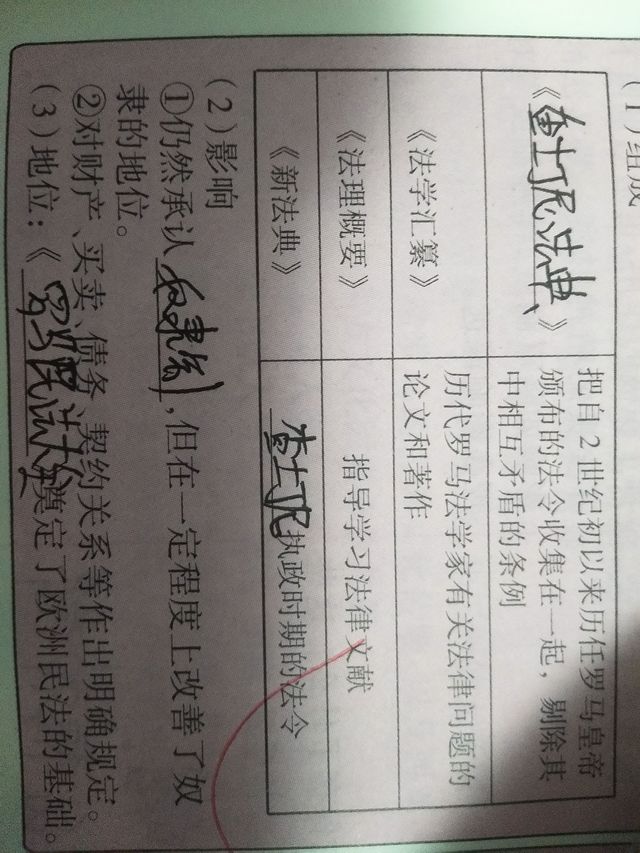 (1)组成
《查士丁尼法典》
把自2世纪初以来历任罗马皇帝
颁布的法令收集在一起，剔除其
中相互矛盾的条例
《法学汇纂》
历代罗马法学家有关法律问题的
论文和著作
《法理概要》
指导学习法律文献
《新法典》
查士丁尼执政时期的法令
(2)影响
①仍然承认奴隶制,但在一定程度上改善了奴
隶的地位。
②对财产、买卖、债务、契约关系等作出明确规定。
(3)地位:《罗马民法大全奠定了欧洲民法的基础。